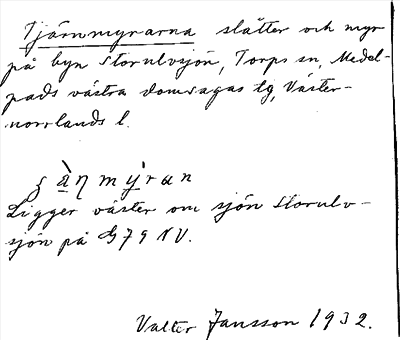 Tjärnmyrarna slåtter och myr
på byn Storulvsjön, Torps sn, Medel-
pads västra domsagas tg, Väster-
norrlands l.
Ligger väster om sjön Storulv-
sjön på G79 NV.
Valter Jansson 1932.